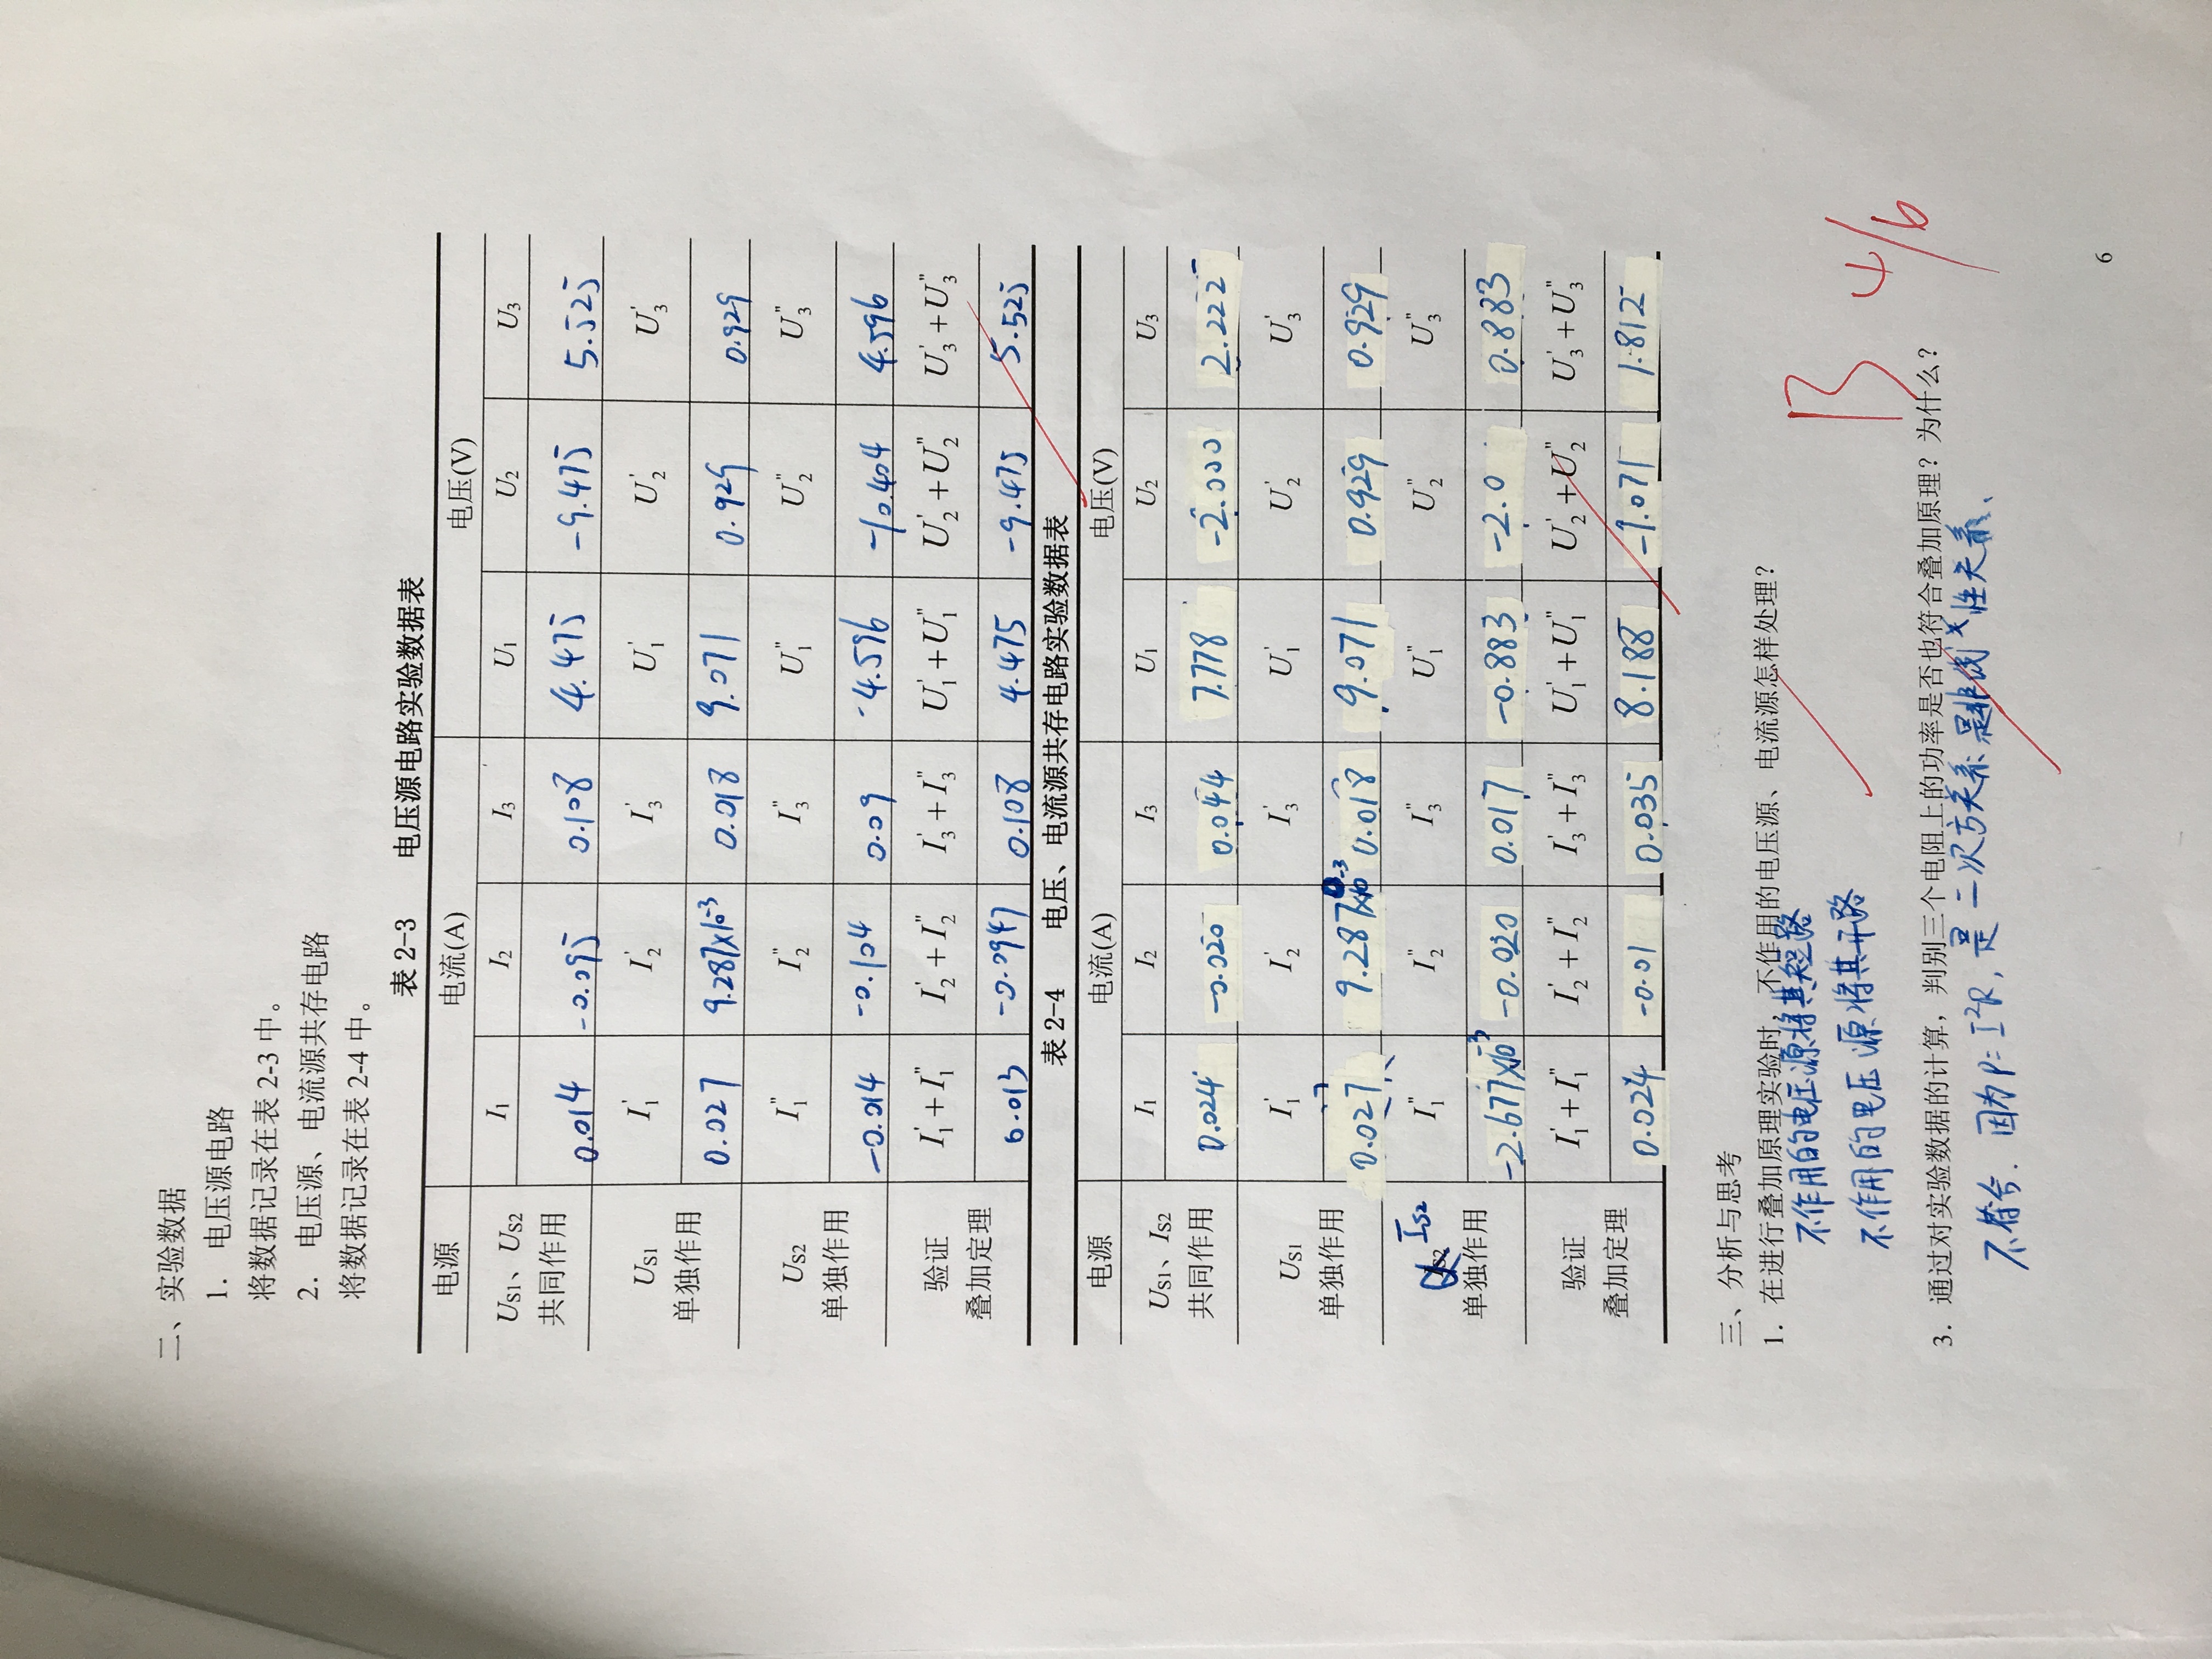 二、实验数据
1. 电压源电路
将数据记录在表 2-3 中。
2. 电压源、电流源共存电路
将数据记录在表 2-4 中。
表 2-3 电压源电路实验数据表
电源 电流(A) 电压(V)
U_S1、U_S2 共同作用 I₁ I₂ I₃ U₁ U₂ U₃
0.014 -0.095 0.108 4.475 -9.475 5.525
U_S1 单独作用 I₁' I₂' I₃' U₁' U₂' U₃'
0.027 9.287×10⁻³ 0.018 9.071 0.929 0.929
U_S2 单独作用 I₁" I₂" I₃" U₁" U₂" U₃"
-0.014 -0.104 0.09 -4.596 -10.404 4.596
验证 叠加定理 I₁'+I₁" I₂'+I₂" I₃'+I₃" U₁'+U₁" U₂'+U₂" U₃'+U₃"
0.013 -0.0947 0.108 4.475 -9.475 5.525
表 2-4 电压、电流源共存电路实验数据表
电源 电流(A) 电压(V)
U_S1、I_S2 共同作用 I₁ I₂ I₃ U₁ U₂ U₃
0.024 -0.020 0.044 7.778 -2.000 2.222
U_S1 单独作用 I₁' I₂' I₃' U₁' U₂' U₃'
0.027 9.287×10⁻³ 0.018 9.071 0.929 0.929
I_S2 单独作用 I₁" I₂" I₃" U₁" U₂" U₃"
-2.677×10⁻³ -0.020 0.017 -0.883 -2.0 0.883
验证 叠加定理 I₁'+I₁" I₂'+I₂" I₃'+I₃" U₁'+U₁" U₂'+U₂" U₃'+U₃"
0.024 -0.01 0.035 8.188 -1.071 1.812
三、分析与思考
1. 在进行叠加原理实验时,不作用的电压源、电流源怎样处理?
不作用的电压源将其短路
不作用的电压源将其开路
3. 通过对实验数据的计算,判别三个电阻上的功率是否也符合叠加原理?为什么?
不符合. 因为P=I²R,是二次方关系.是非线性关系、
B 4/6
6